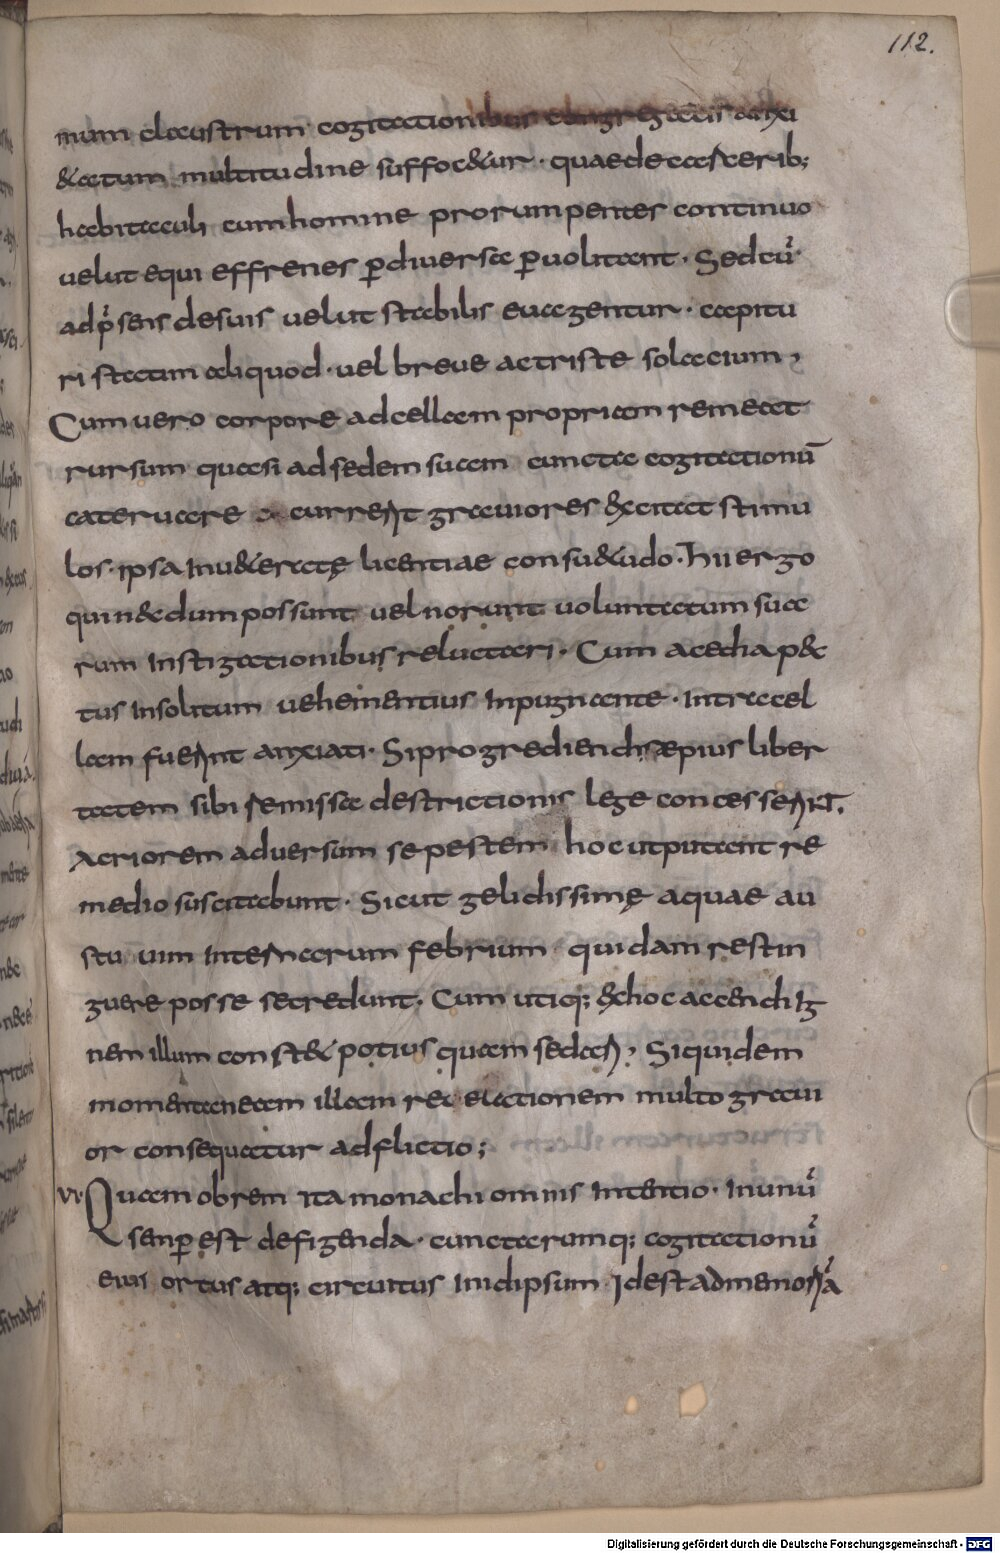 112.
mum claustrum cogitationibus congregatis anxi
&atum multitudine suffoc&ur · quae de ca&erib;
habitaculi cum homine prorumpentes continuo
velut equi effrenes p diversa pvolitant · Sed tū
ad psens de suis velut stabilis evagentur · capitu
ri statim aliquod · vel breve ac triste solacium ;
Cum vero corpore ad cellam propriam remeat
rursum quasi ad sedem suam cunctae cogitationū
catervae currerint graviores &citat stimu
los · ipsa inv&eratę licentiae consu&udo · hii ergo
qui n&dum possunt vel norunt voluntatum sua
rum instigationibus reluctari · Cum acedia pec
tus insolitum vehementius inpugnante · intra cel
lam fuerint anxiati · Si progrediendi sæpius liber
tatem sibi remissa destrictionis lege concesserint .
Acriorem adversum se pestem hoc ut putant re
medio suscitabunt · Sicut gelidissimę aquae au
stu vim internarum febrium quidam restin
guere posse se credunt · Cum utiq; &hoc accendi ig
nem illum const& potius quam sedari ; Siquidem
momentaneam illam rec eationem multo gravi
or consequatur adflictio ;
VI · Quam obrem ita monachi omnis intentio · in unū
semp est defigenda · cunctarumq; cogitationū
eius ortus atq; circuitus in idipsum Idest ad memoriā
Digitalisierung gefördert durch die Deutsche Forschungsgemeinschaft - DFG